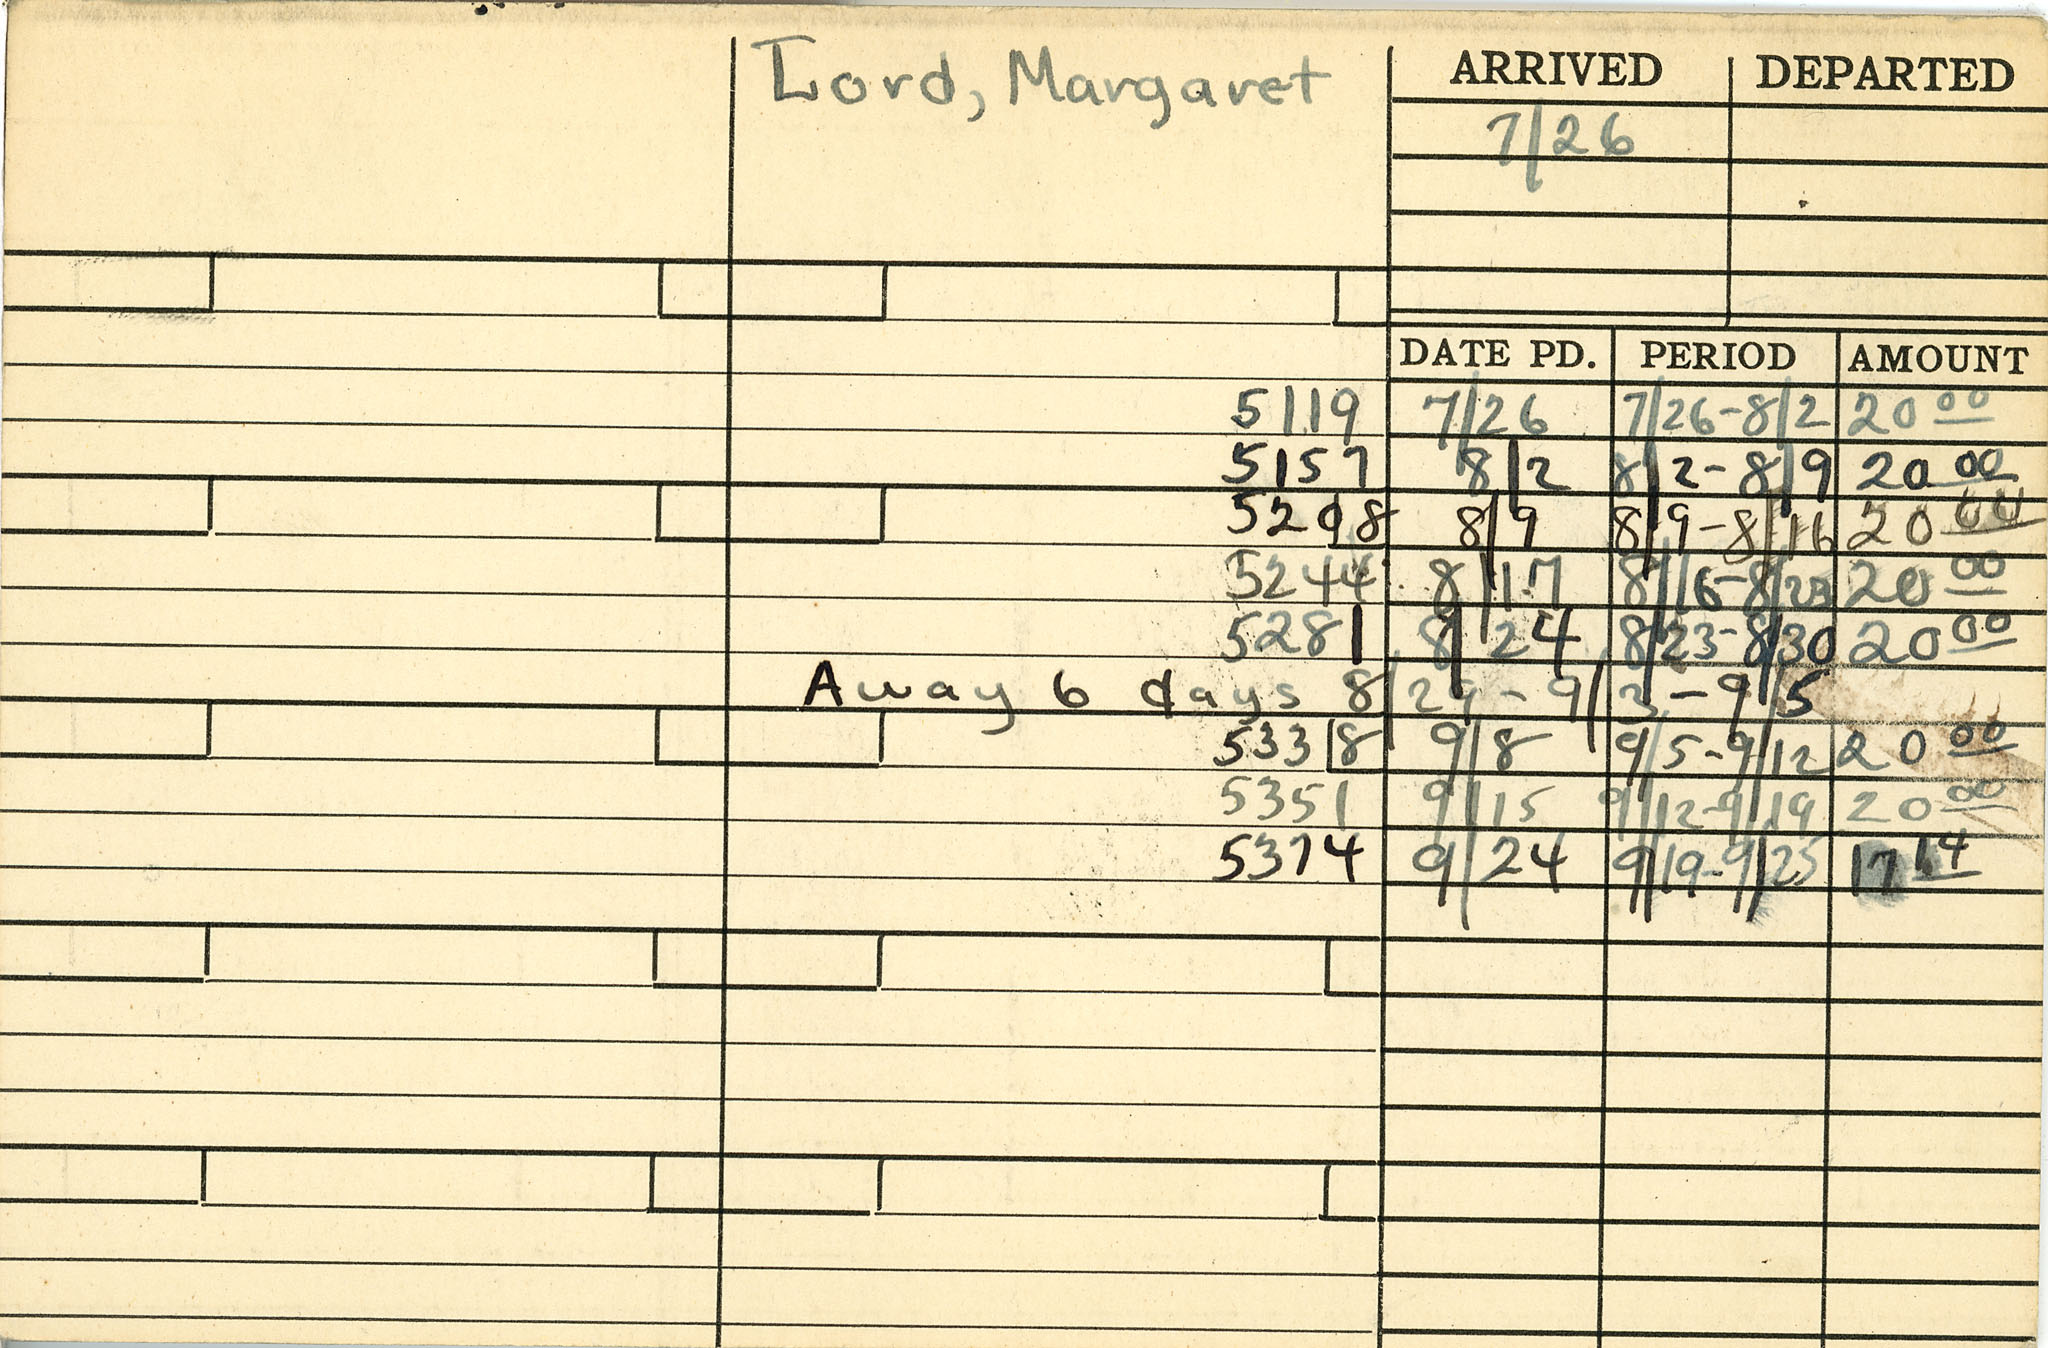 Lord, Margaret
ARRIVED DEPARTED
7/26
DATE PD. PERIOD AMOUNT
5119 7/26 7/26-8/2 20 00
5157 8/2 8/2-8/9 20 00
5208 8/9 8/9-8/16 20 00
5244 8/17 8/16-8/23 20 00
5281 8/24 8/23-8/30 20 00
Away 6 days 8/29-9/3-9/5
5338 9/8 9/5-9/12 20 00
5351 9/15 9/12-9/19 20 00
5374 9/24 9/19-9/25 17 14